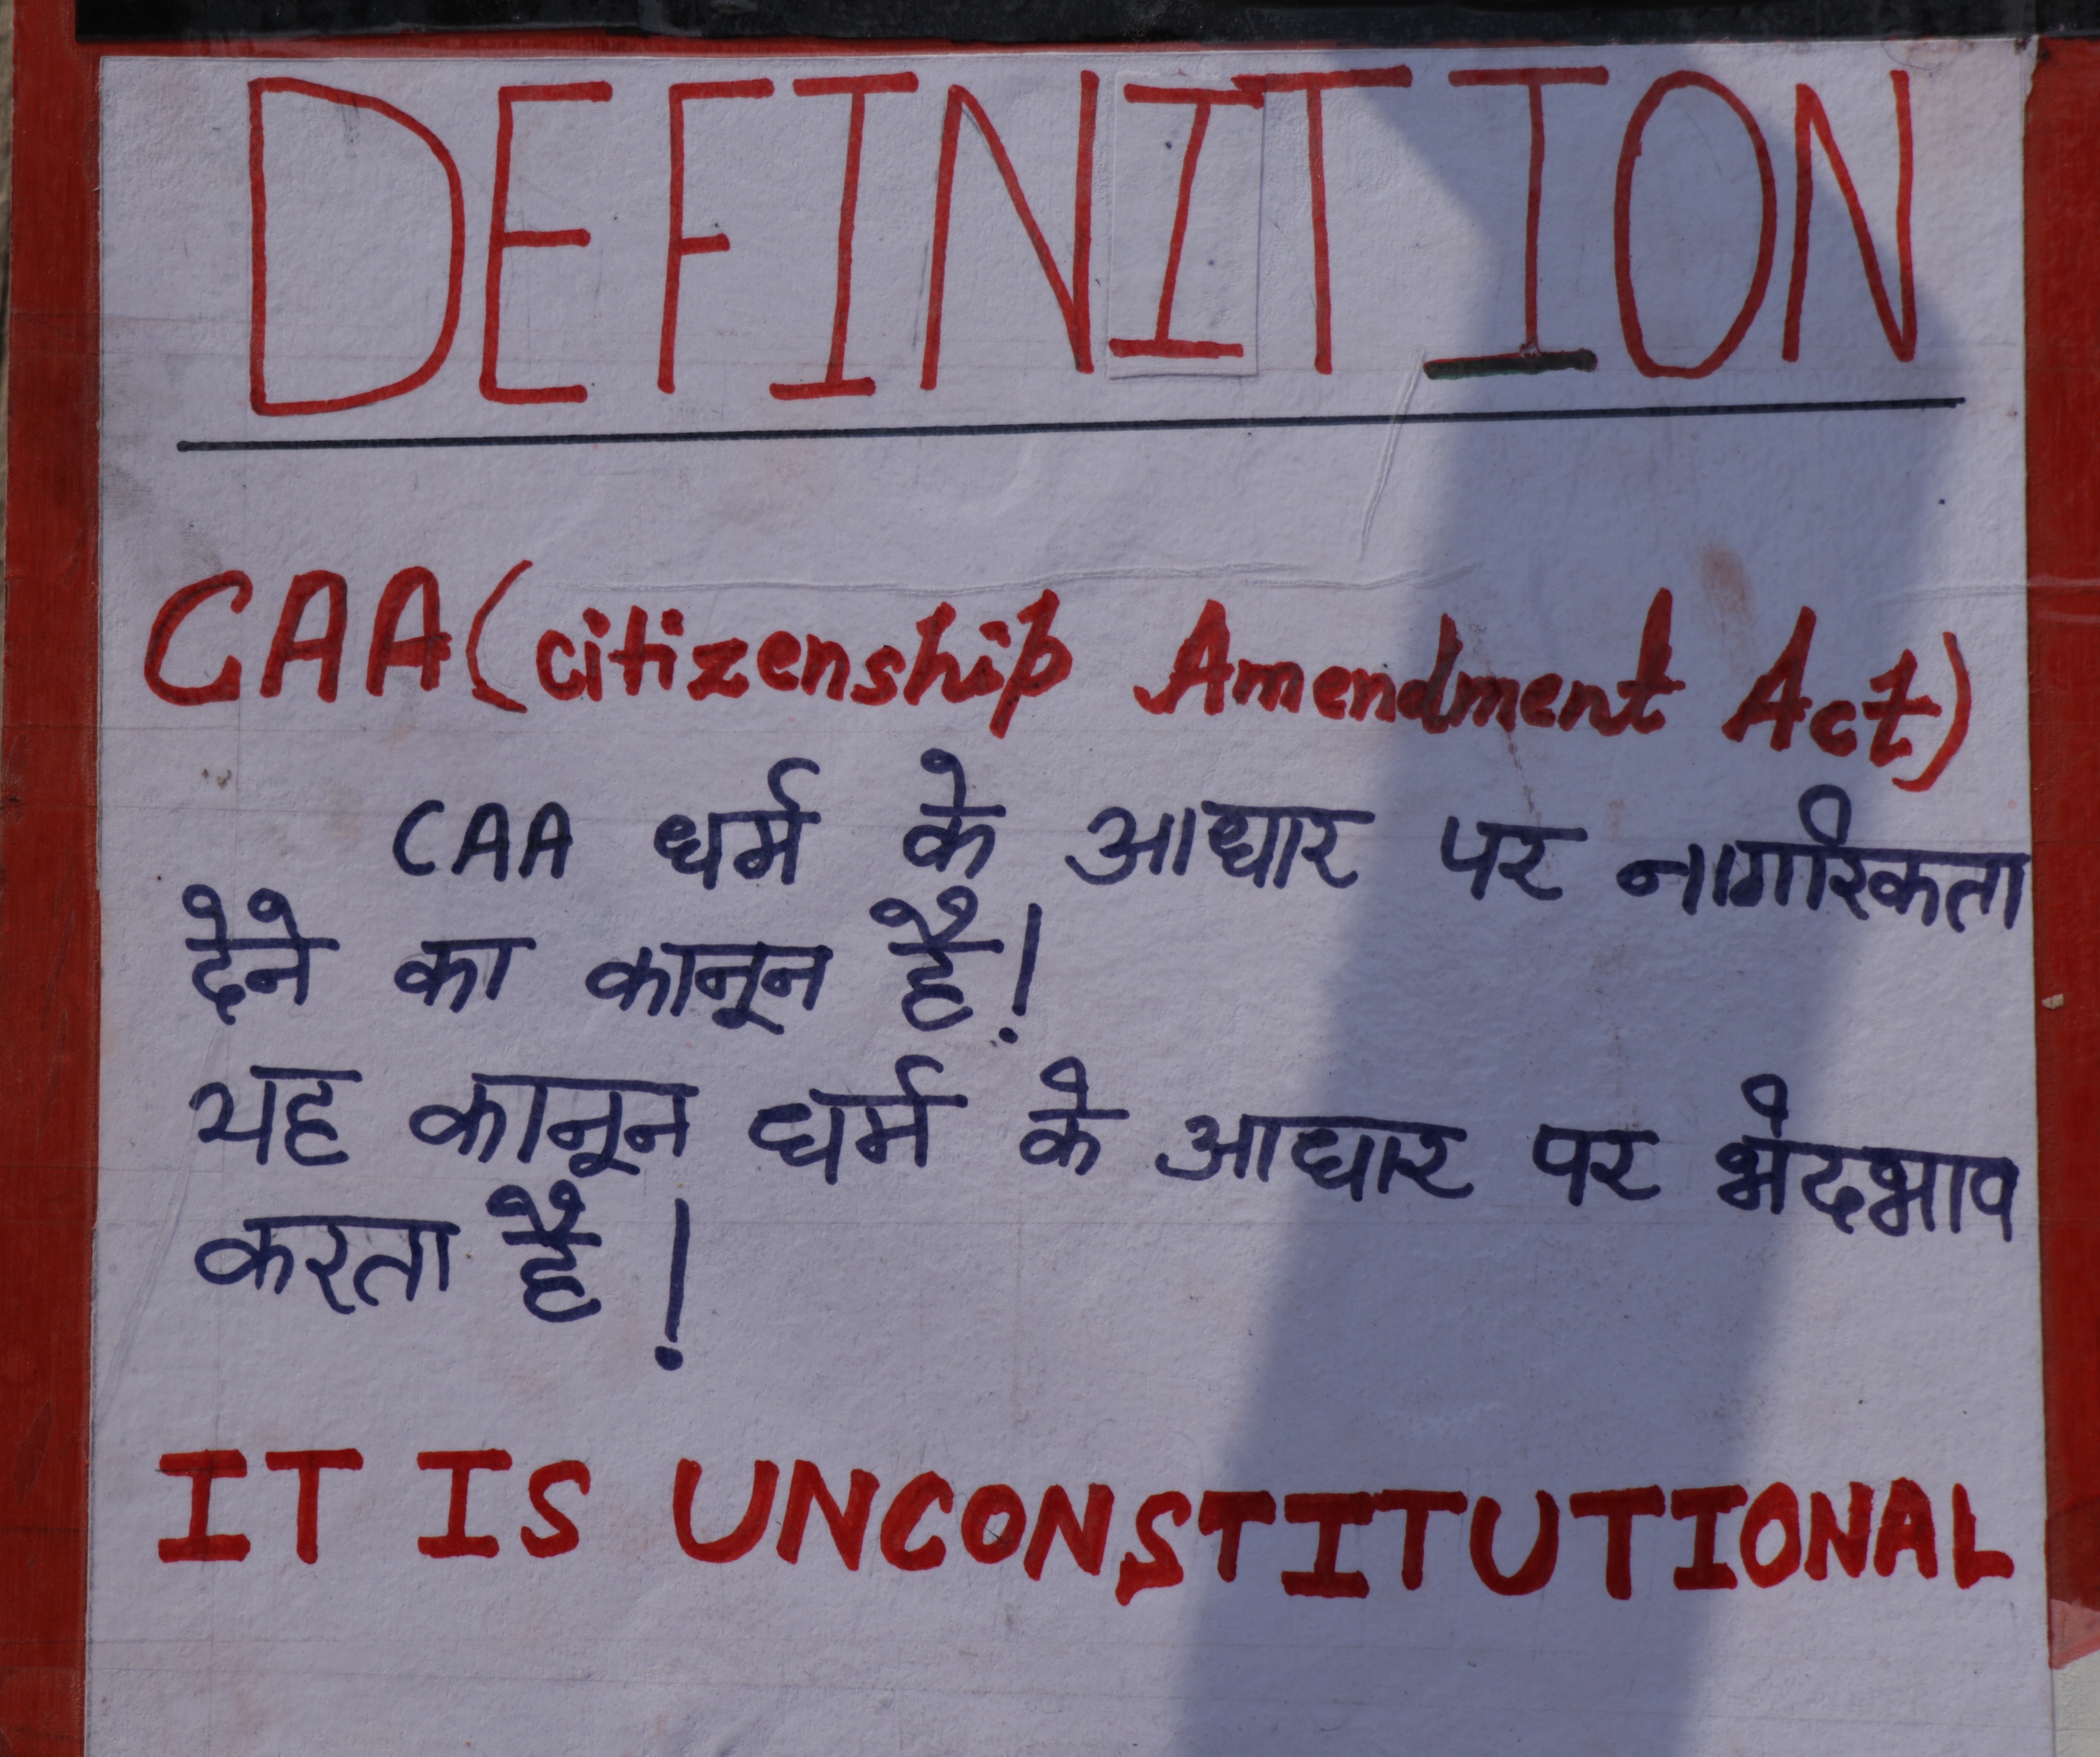 DEFINITION
CAA (citizenship Amendment Act)
CAA धर्म के आधार पर नागरिकता
देने का कानून है!
यह कानून धर्म के आधार पर भेदभाव
करता है!
IT IS UNCONSTITUTIONAL